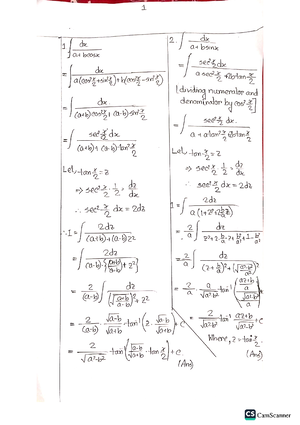 1
1. ∫ dx / (a+b cosx)
= ∫ dx / (a(cos² x/2 + sin² x/2) + b(cos² x/2 - sin² x/2))
= ∫ dx / ((a+b)cos² x/2 + (a-b) sin² x/2)
= ∫ sec² x/2 dx / ((a+b) + (a-b) tan² x/2)
Let, tan x/2 = z
⇒ sec² x/2 · 1/2 = dz/dx
∴ sec² x/2 dx = 2dz
∴ I = ∫ 2dz / ((a+b) + (a-b) z²)
= ∫ 2dz / ((a-b) {(a+b)/(a-b) + z²})
= 2/(a-b) ∫ dz / ((√(a+b)/√(a-b))² + z²)
= 2/(a-b) · √(a-b)/√(a+b) · tan⁻¹ (z · √(a-b)/√(a+b)) + c
= 2/√(a²-b²) · tan⁻¹ (√(a-b)/√(a+b) · tan x/2) + c
(Ans)
2. ∫ dx / (a + b sinx)
= ∫ sec² x/2 dx / (a sec² x/2 + 2b tan x/2)
[dividing numerator and
denominator by cos² x/2]
= ∫ sec² x/2 dx / (a + a tan² x/2 + 2b tan x/2)
Let, tan x/2 = z
⇒ sec² x/2 · 1/2 = dz/dx
∴ sec² x/2 dx = 2dz
I = ∫ 2dz / (a (1+z²+ 2b/a z))
= 2/a ∫ dz / (z² + 2 · b/a · z + (b/a)² + 1 - b²/a²)
= 2/a ∫ dz / ((z + b/a)² + (√(a²-b²)/a)²)
= 2/a · a/√(a²-b²) · tan⁻¹ ((az+b)/a / (√(a²-b²)/a)) + c
= 2/√(a²-b²) tan⁻¹ (az+b)/√(a²-b²) + c
Where, z = tan x/2
(Ans)
CS CamScanner